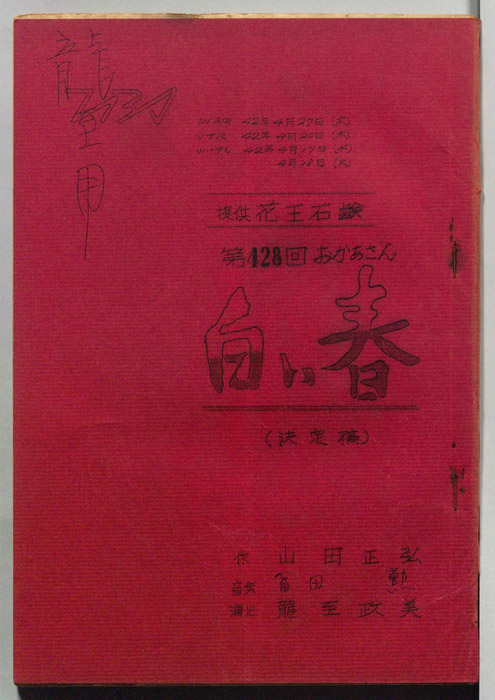 龍至用
ON AIR 42年4月27日(木)
VTR 42年4月20日(木)
リハーサル 42年4月19日(水)
4月18日(火)
提供 花王石鹸
第428回 おかあさん
白い春
(決定稿)
作 山田正弘
音楽 冨田勲
演出 龍至政美